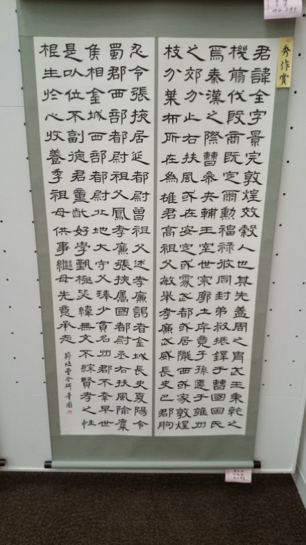 秀作賞
君諱全字景完敦煌效穀人也其先蓋周之冑武王秉乾之
機翦伐殷商既定爾勳福祿攸同封弟叔振鐸于曹國因氏
焉秦漢之際曹參夾輔王室世宗廓土斥竟子孫遷于雍州
之郊分止右扶風或在安定或處武都或居隴西或家敦煌
枝分葉布所在為雄君高祖父敏舉孝廉武威長史巴郡朐
忍令張掖居延都尉曾祖父述孝廉謁者金城長史夏陽令
蜀郡西部都尉祖父鳳孝廉張掖屬國都尉丞右扶風隃麋
侯相金城西部都尉北地大守父琫少貫名州郡不幸早世
是以位不副德君童齔好學甄極毖緯無文不綜賢孝之性
根生於心收養季祖母供事繼母先意承志
節臨曹全碑